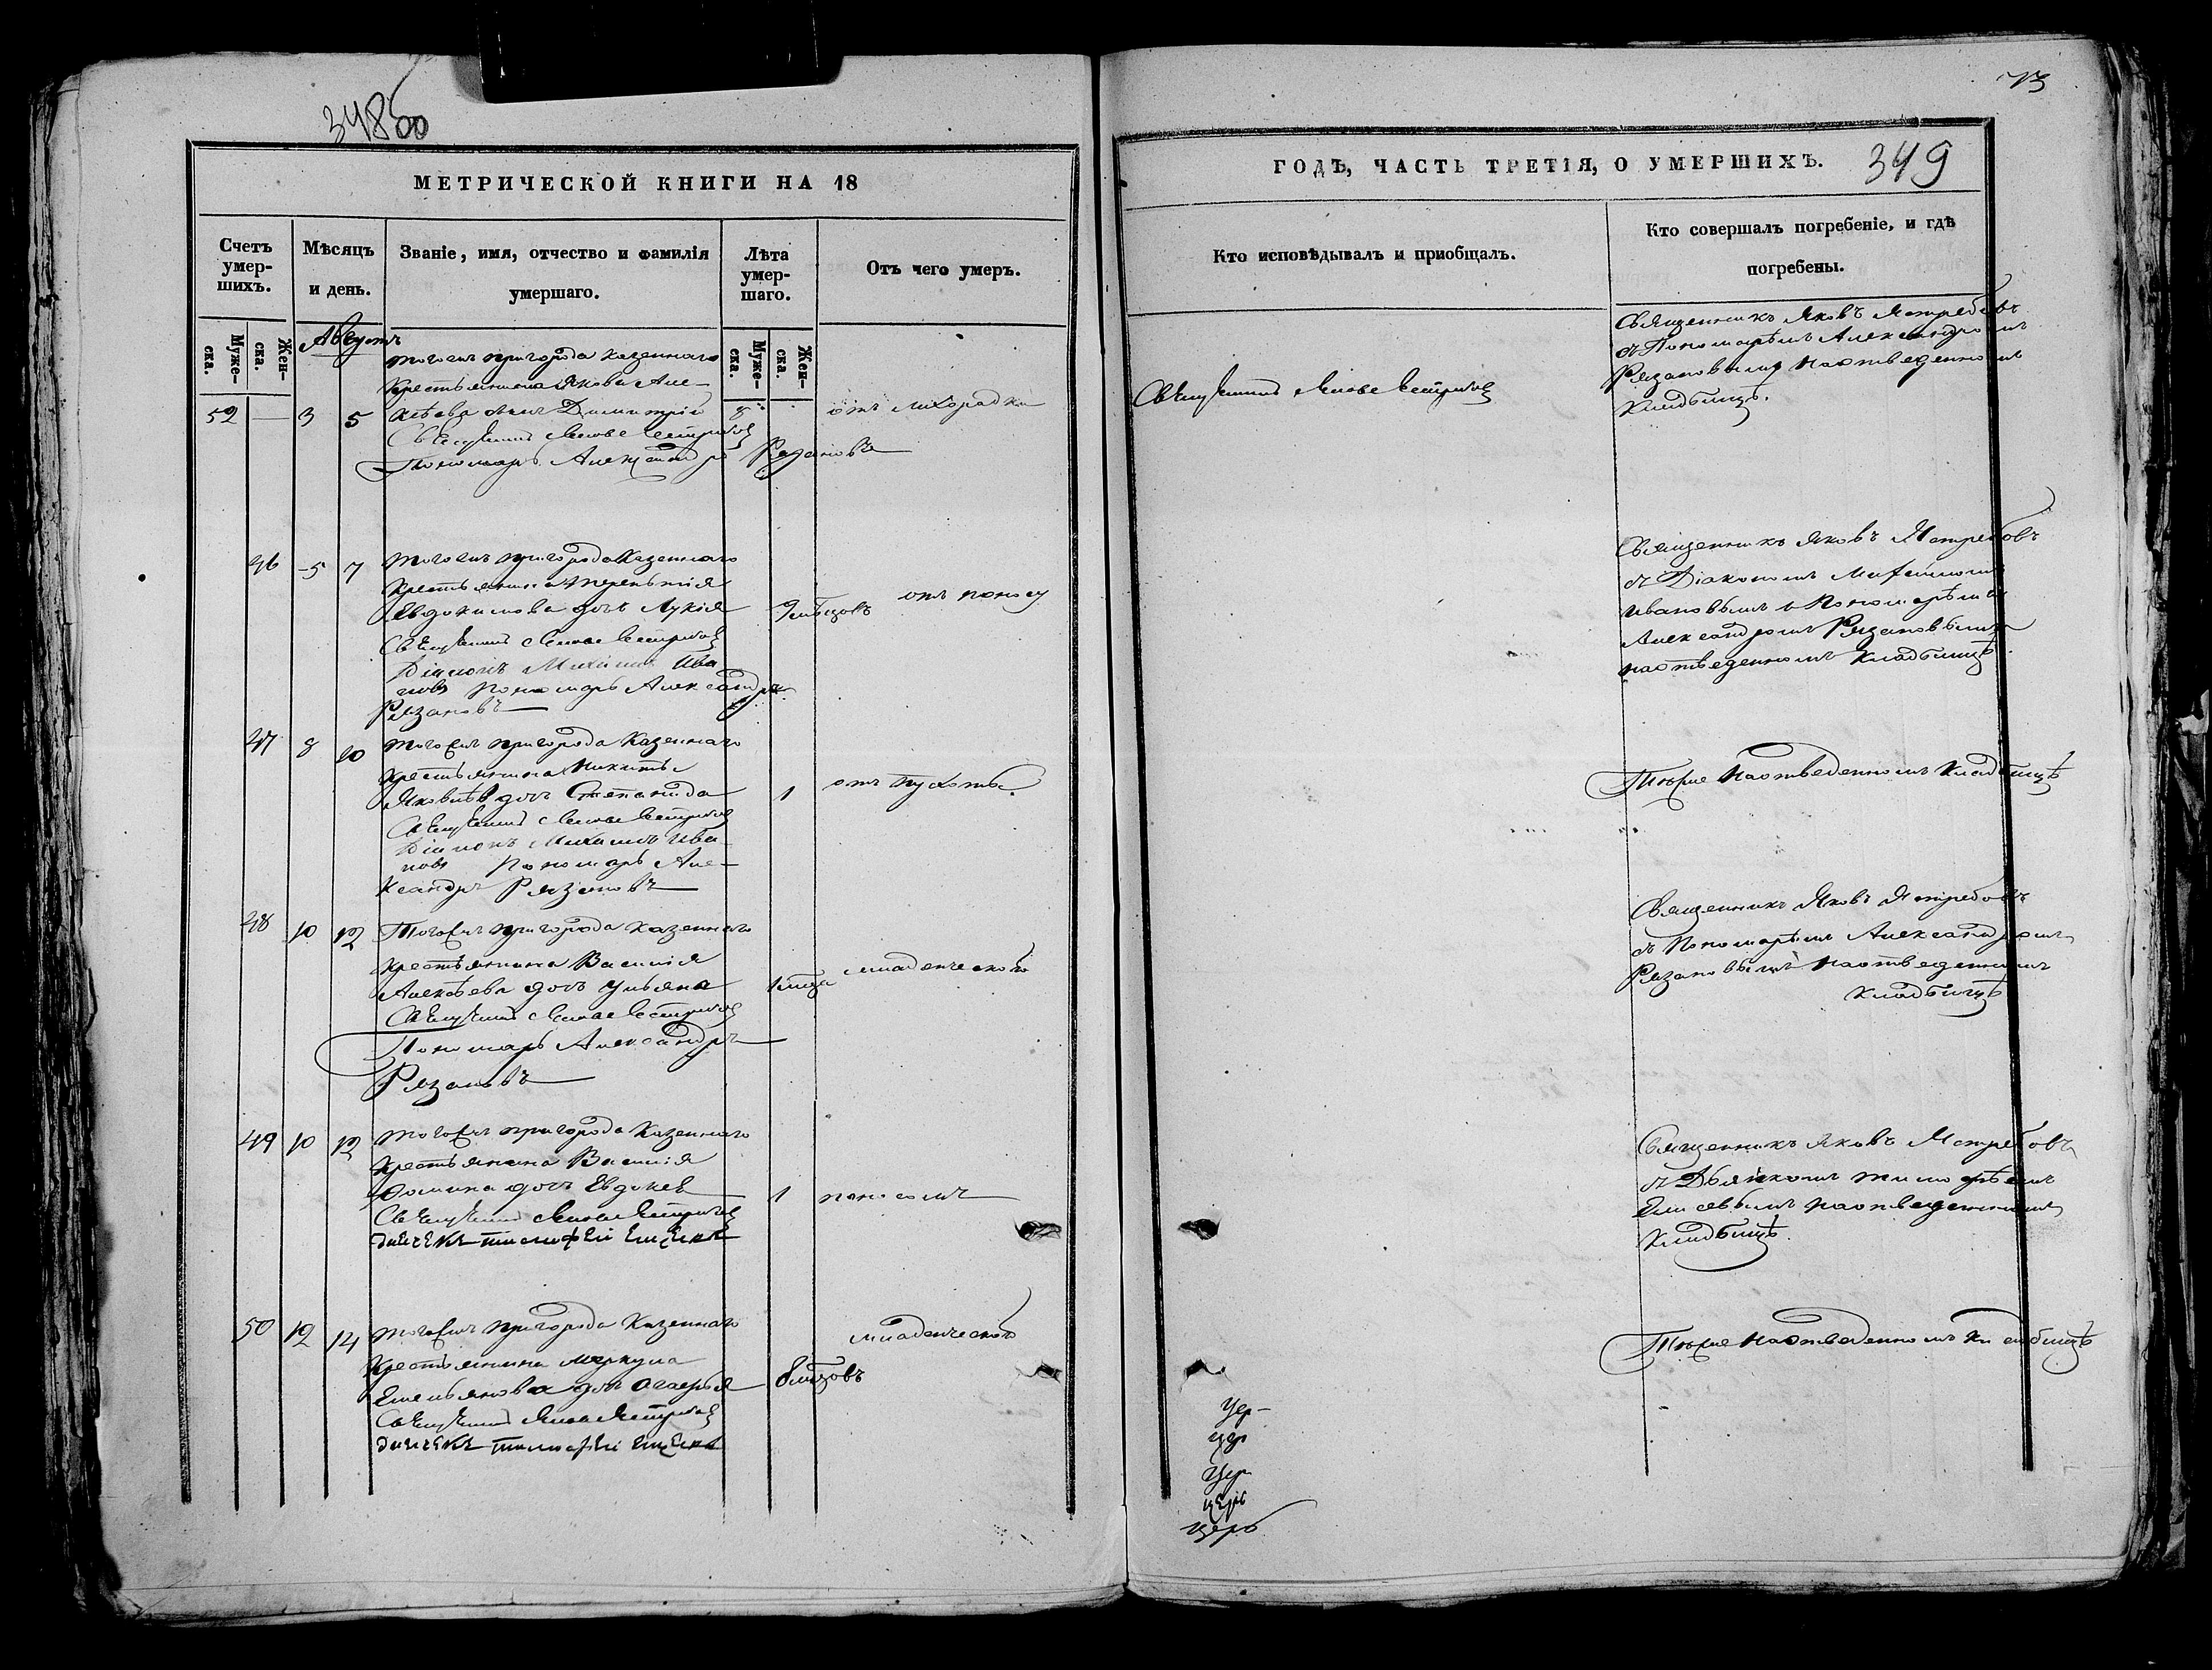 34850
МЕТРИЧЕСКОЙ КНИГИ НА 18
Счетъ умер-шихъ.
Муже-ска.
Жен-ска.
Мѣсяцъ и день.
Званіе, имя, отчество и фамилія умершаго.
Лѣта умер-шаго.
Муже-ска.
Жен-ска.
Отъ чего умеръ.
Августъ
тогожъ пригорода казеннаго
крестьянина Якова Але-
52 — 3 5 ксѣева сынъ Димитрій 8 отъ лихорадки
Священникъ Яковъ Ястребовъ
Пономарь Александръ Рязановъ
46 5 7 тогожъ пригорода Казеннаго
крестьянина Терентія
Евдокимова дочь Лукія 9 мѣсцовъ отъ поносу
Священникъ Яковъ Ястребовъ
Діаконъ Михаилъ Ива
новъ Пономарь Александръ
Рязановъ
47 8 10 тогожъ пригорода Казеннаго
крестьянина Никиты
Яковлева дочь Степанида 1
Священникъ Яковъ Ястребовъ
Діаконъ Михаилъ Ива
новъ Пономарь Але-
ксандръ Рязановъ
48 10 12 Тогожъ пригорода казеннаго
крестьянина Василія
Алексѣева дочь Ульяна младенческой
Священникъ Яковъ Ястребовъ
Пономарь Александръ
Рязановъ
49 10 12 тогожъ пригорода Казеннаго
крестьянина Василія
Фомина дочь Евдокея 1 поносомъ
Священникъ Яковъ Ястребовъ
дьячекъ тимофей
50 12 14 тогожъ пригорода Казеннаго
крестьянина меркула
Емельянова дочь Агафья 8 мѣсцовъ младенческой
Священникъ Яковъ Ястребовъ
дьячекъ тимофей
73
ГОДЪ, ЧАСТЬ ТРЕТІЯ, О УМЕРШИХЪ. 349
Кто исповѣдывалъ и пріобщалъ.
Кто совершалъ погребеніе, и гдѣ погребены.
Священникъ Яковъ Ястребовъ
Священникъ Яковъ Ястребовъ
съ Пономарѣмъ Александромъ
Рязановымъ наотведенномъ
Кладбищѣ.
Священникъ Яковъ Ястребовъ
съ Діакономъ Михаиломъ
Ивановымъ и Пономарѣмъ
Александромъ Рязановымъ
наотведенномъ Кладбищѣ
Тѣже Наотведенномъ Кладбищѣ
Священникъ Яковъ Ястребовъ
съ Пономарѣмъ Александромъ
Рязановымъ наотведенномъ
Кладбищѣ
Священникъ Яковъ Ястребовъ
съ Дьячкомъ тимофѣемъ
Елисевымъ наотведенномъ
Кладбищѣ.
Тѣже Наотведенномъ Кладбищѣ
Цер-
цер
Цер
церь
церь